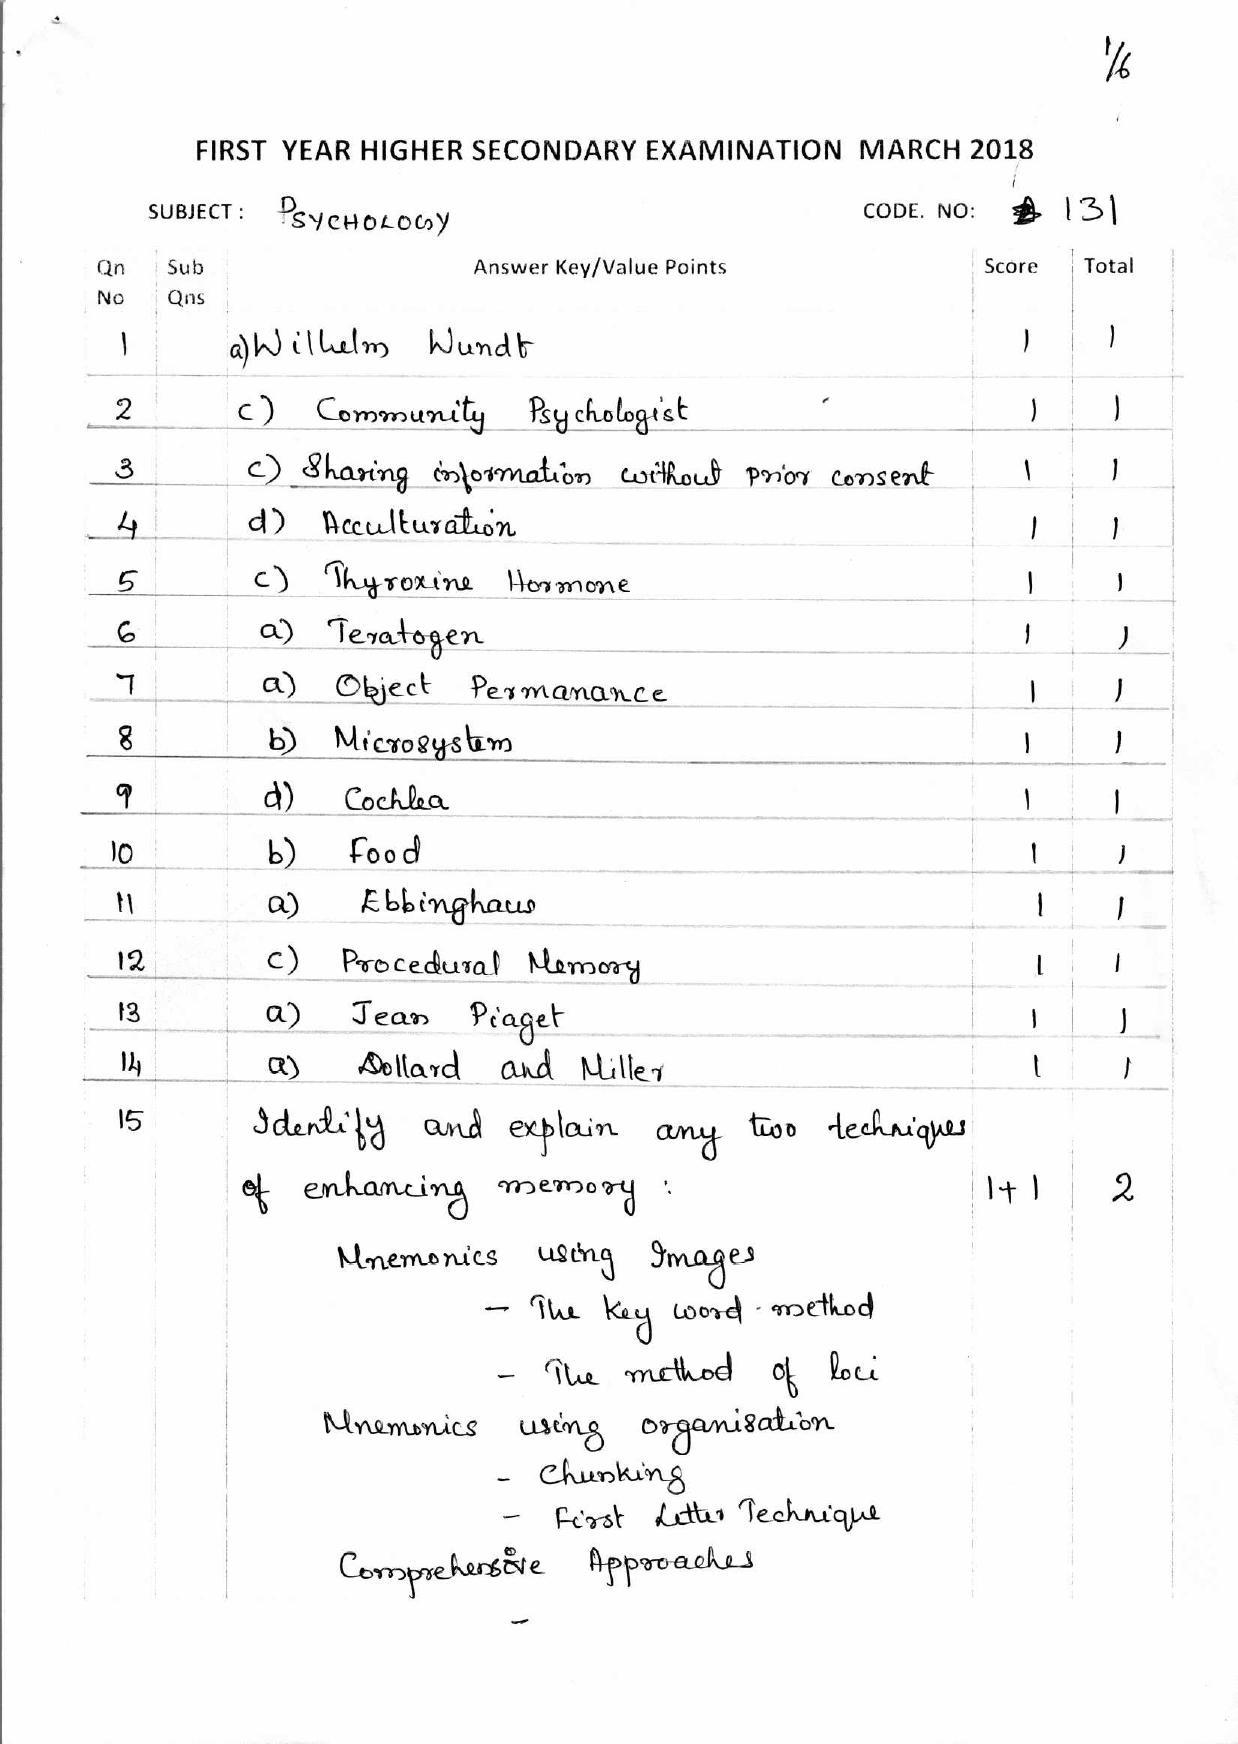 1/6
FIRST YEAR HIGHER SECONDARY EXAMINATION MARCH 2018
SUBJECT : PSYCHOLOGY CODE. NO: 131
Qn No Sub Qns Answer Key/Value Points Score Total
1 a) Wilhelm Wundt 1 1
2 c) Community Psychologist 1 1
3 c) Sharing information without prior consent 1 1
4 d) Acculturation 1 1
5 c) Thyroxine Hormone 1 1
6 a) Teratogen 1 1
7 a) Object Permanance 1 1
8 b) Microsystem 1 1
9 d) Cochlea 1 1
10 b) Food 1 1
11 a) Ebbinghaus 1 1
12 c) Procedural Memory 1 1
13 a) Jean Piaget 1 1
14 a) Dollard and Miller 1 1
15 Identify and explain any two techniques
of enhancing memory : 1+1 2
Mnemonics using Images
- The key word - method
- The method of loci
Mnemonics using organisation
- Chunking
- First Letter Technique
Comprehensive Approaches
-